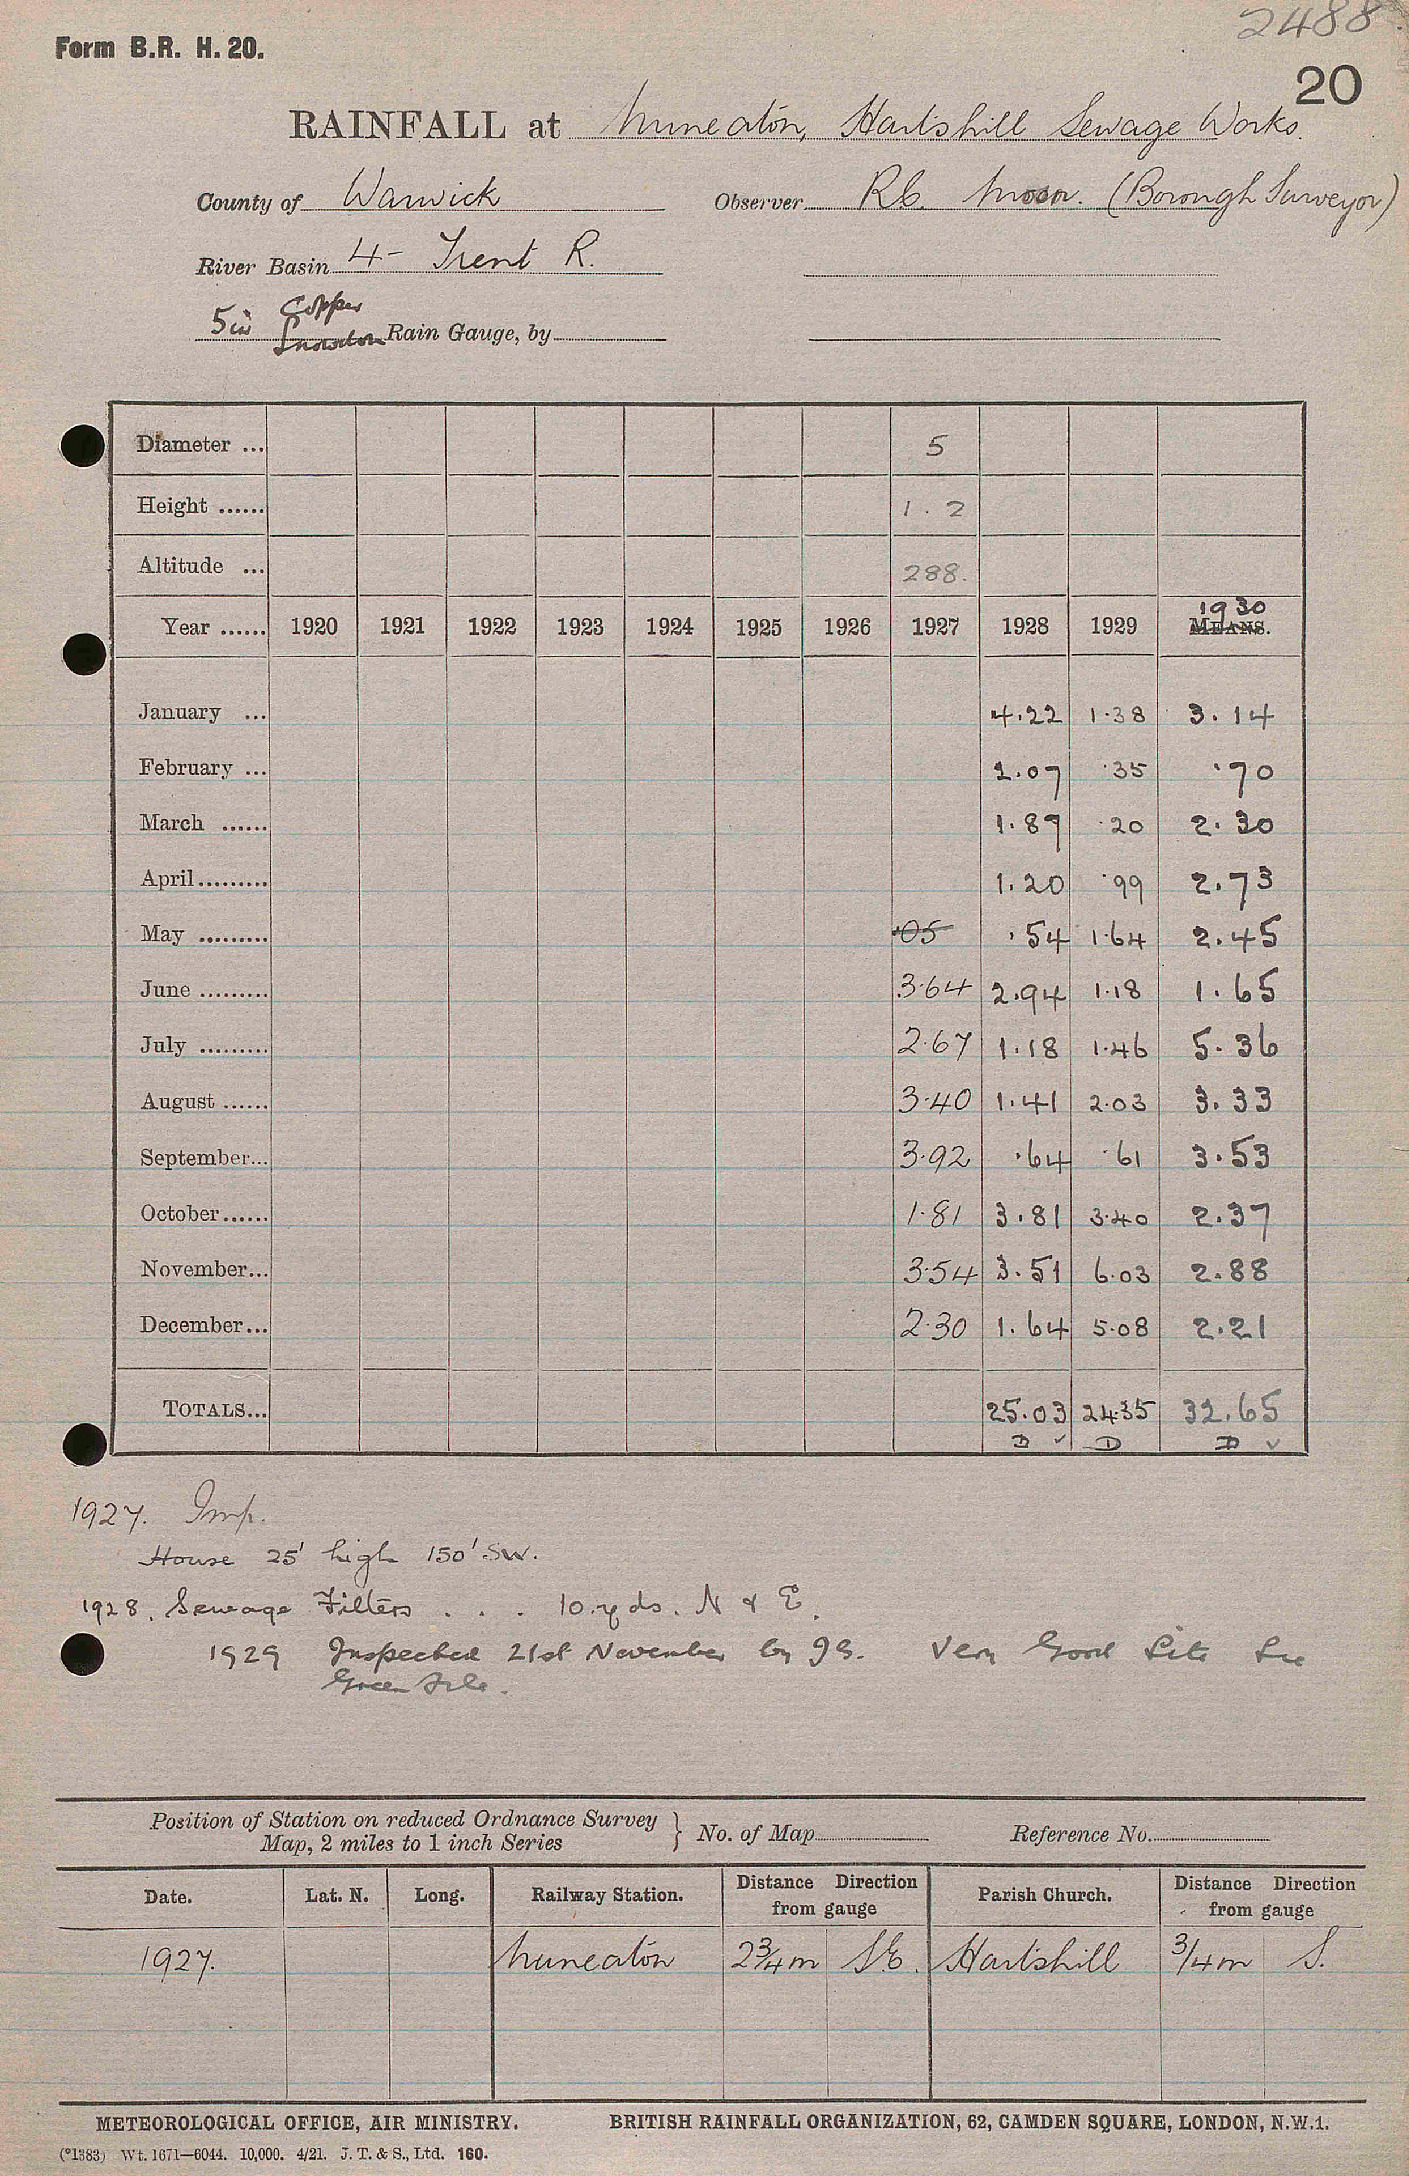 2488.
Form B.R. H. 20.
20
RAINFALL at Nuneaton, Hartshill Sewage Works.
County of Warwick Observer R.C. Moon. (Borough Surveyor)
River Basin 4 - Trent R.
5 in Copper Snowdon Rain Gauge, by
Diameter ... 5
Height ...... 1.2
Altitude ... 288.
Year ...... 1920 1921 1922 1923 1924 1925 1926 1927 1928 1929 1930 MEANS.
January ... 4.22 1.38 3.14
February ... 2.07 .35 .70
March ...... 1.89 .20 2.30
April......... 1.20 .99 2.73
May ......... .05 .54 1.64 2.45
June ......... 3.64 2.94 1.18 1.65
July ......... 2.67 1.18 1.46 5.36
August ...... 3.40 1.41 2.03 3.33
September... 3.92 .64 .61 3.53
October...... 1.81 3.81 3.40 2.37
November... 3.54 3.51 6.03 2.88
December... 2.30 1.64 5.08 2.21
TOTALS... 25.03 24.35 32.65
D ✓ D D ✓
1927. Imp.
House 25' high 150' SW.
1928. Sewage Filters . . . 10 yds. N & E.
1929 Inspected 21st November by Very Good Site See
Green File.
Position of Station on reduced Ordnance Survey
Map, 2 miles to 1 inch Series } No. of Map Reference No.
Date. Lat. N. Long. Railway Station. Distance Direction from gauge Parish Church. Distance Direction from gauge
1927. Nuneaton 2 3/4 m SE. Hartshill 3/4 m S.
METEOROLOGICAL OFFICE, AIR MINISTRY. BRITISH RAINFALL ORGANIZATION, 62, CAMDEN SQUARE, LONDON, N.W.1.
(*1383) Wt. 1671—6044. 10,000. 4/21. J. T. & S., Ltd. 160.